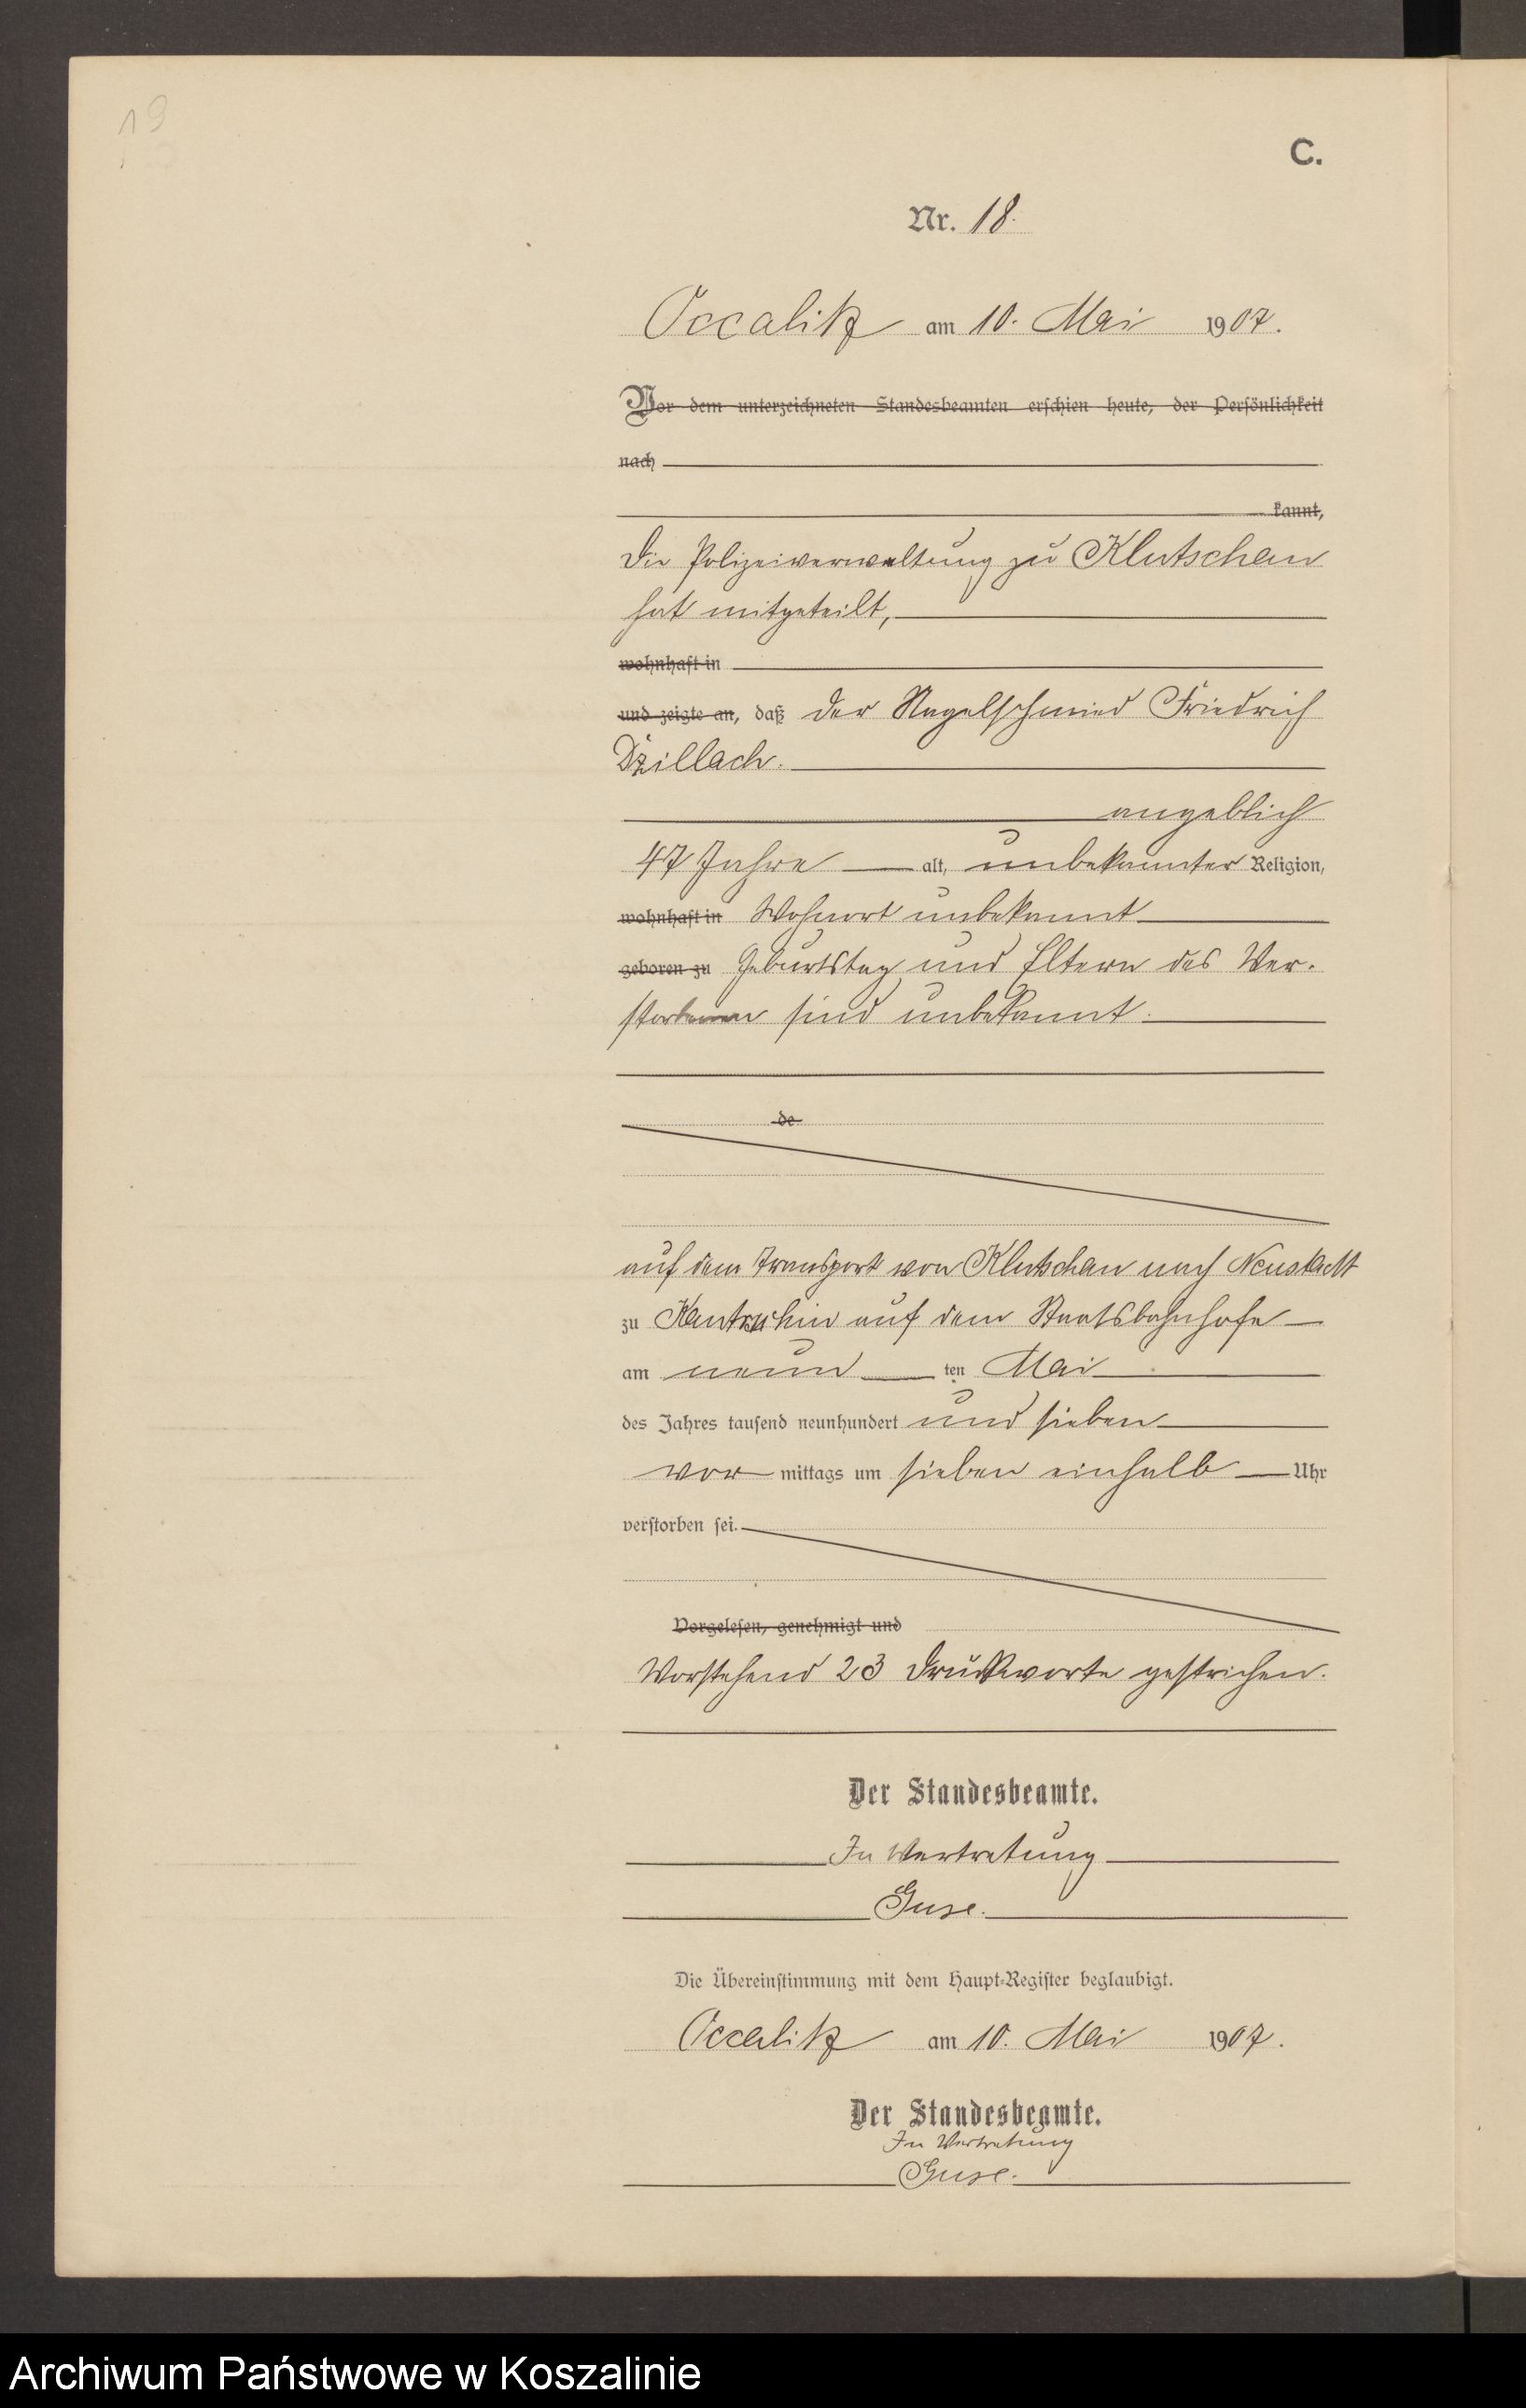 19
C.
Nr. 18.
Occalitz am 10. Mai 1907.
Vor dem unterzeichneten Standesbeamten erschien heute, der Persönlichkeit
nach
kannt,
Die Polizeiverwaltung zu Klutschau
hat mitgeteilt,
wohnhaft in
und zeigte an, daß der Nagelschmied Friedrich
Dzillach.
angeblich
47 Jahre alt, unbekannter Religion,
wohnhaft in Wohnort unbekannt
geboren zu Geburtstag und Eltern des Ver-
storbenen sind unbekannt.
de
auf dem Transport von Klutschau nach Neustadt
zu Kantrschin auf dem Staatsbahnhofe
am neun ten Mai
des Jahres tausend neunhundert und sieben
vor mittags um sieben einhalb Uhr
verstorben sei.
Vorgelesen, genehmigt und
Vorstehend 23 Druckworte gestrichen.
Der Standesbeamte.
In Vertretung
Guse.
Die Übereinstimmung mit dem Haupt-Register beglaubigt.
Occalitz am 10. Mai 1907.
Der Standesbeamte.
In Vertretung
Guse.
Archiwum Państwowe w Koszalinie